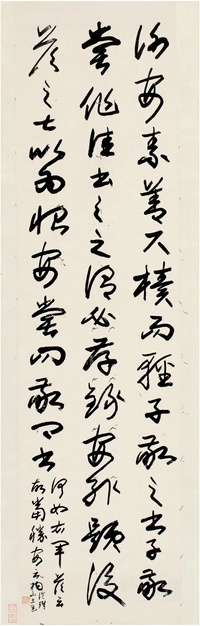 謝安素善尺牘而輕子敬之書子敬
嘗作佳書與之謂必存錄安輒題後
答之甚以為恨安嘗問敬卿書
何如右軍答云
故當勝安云